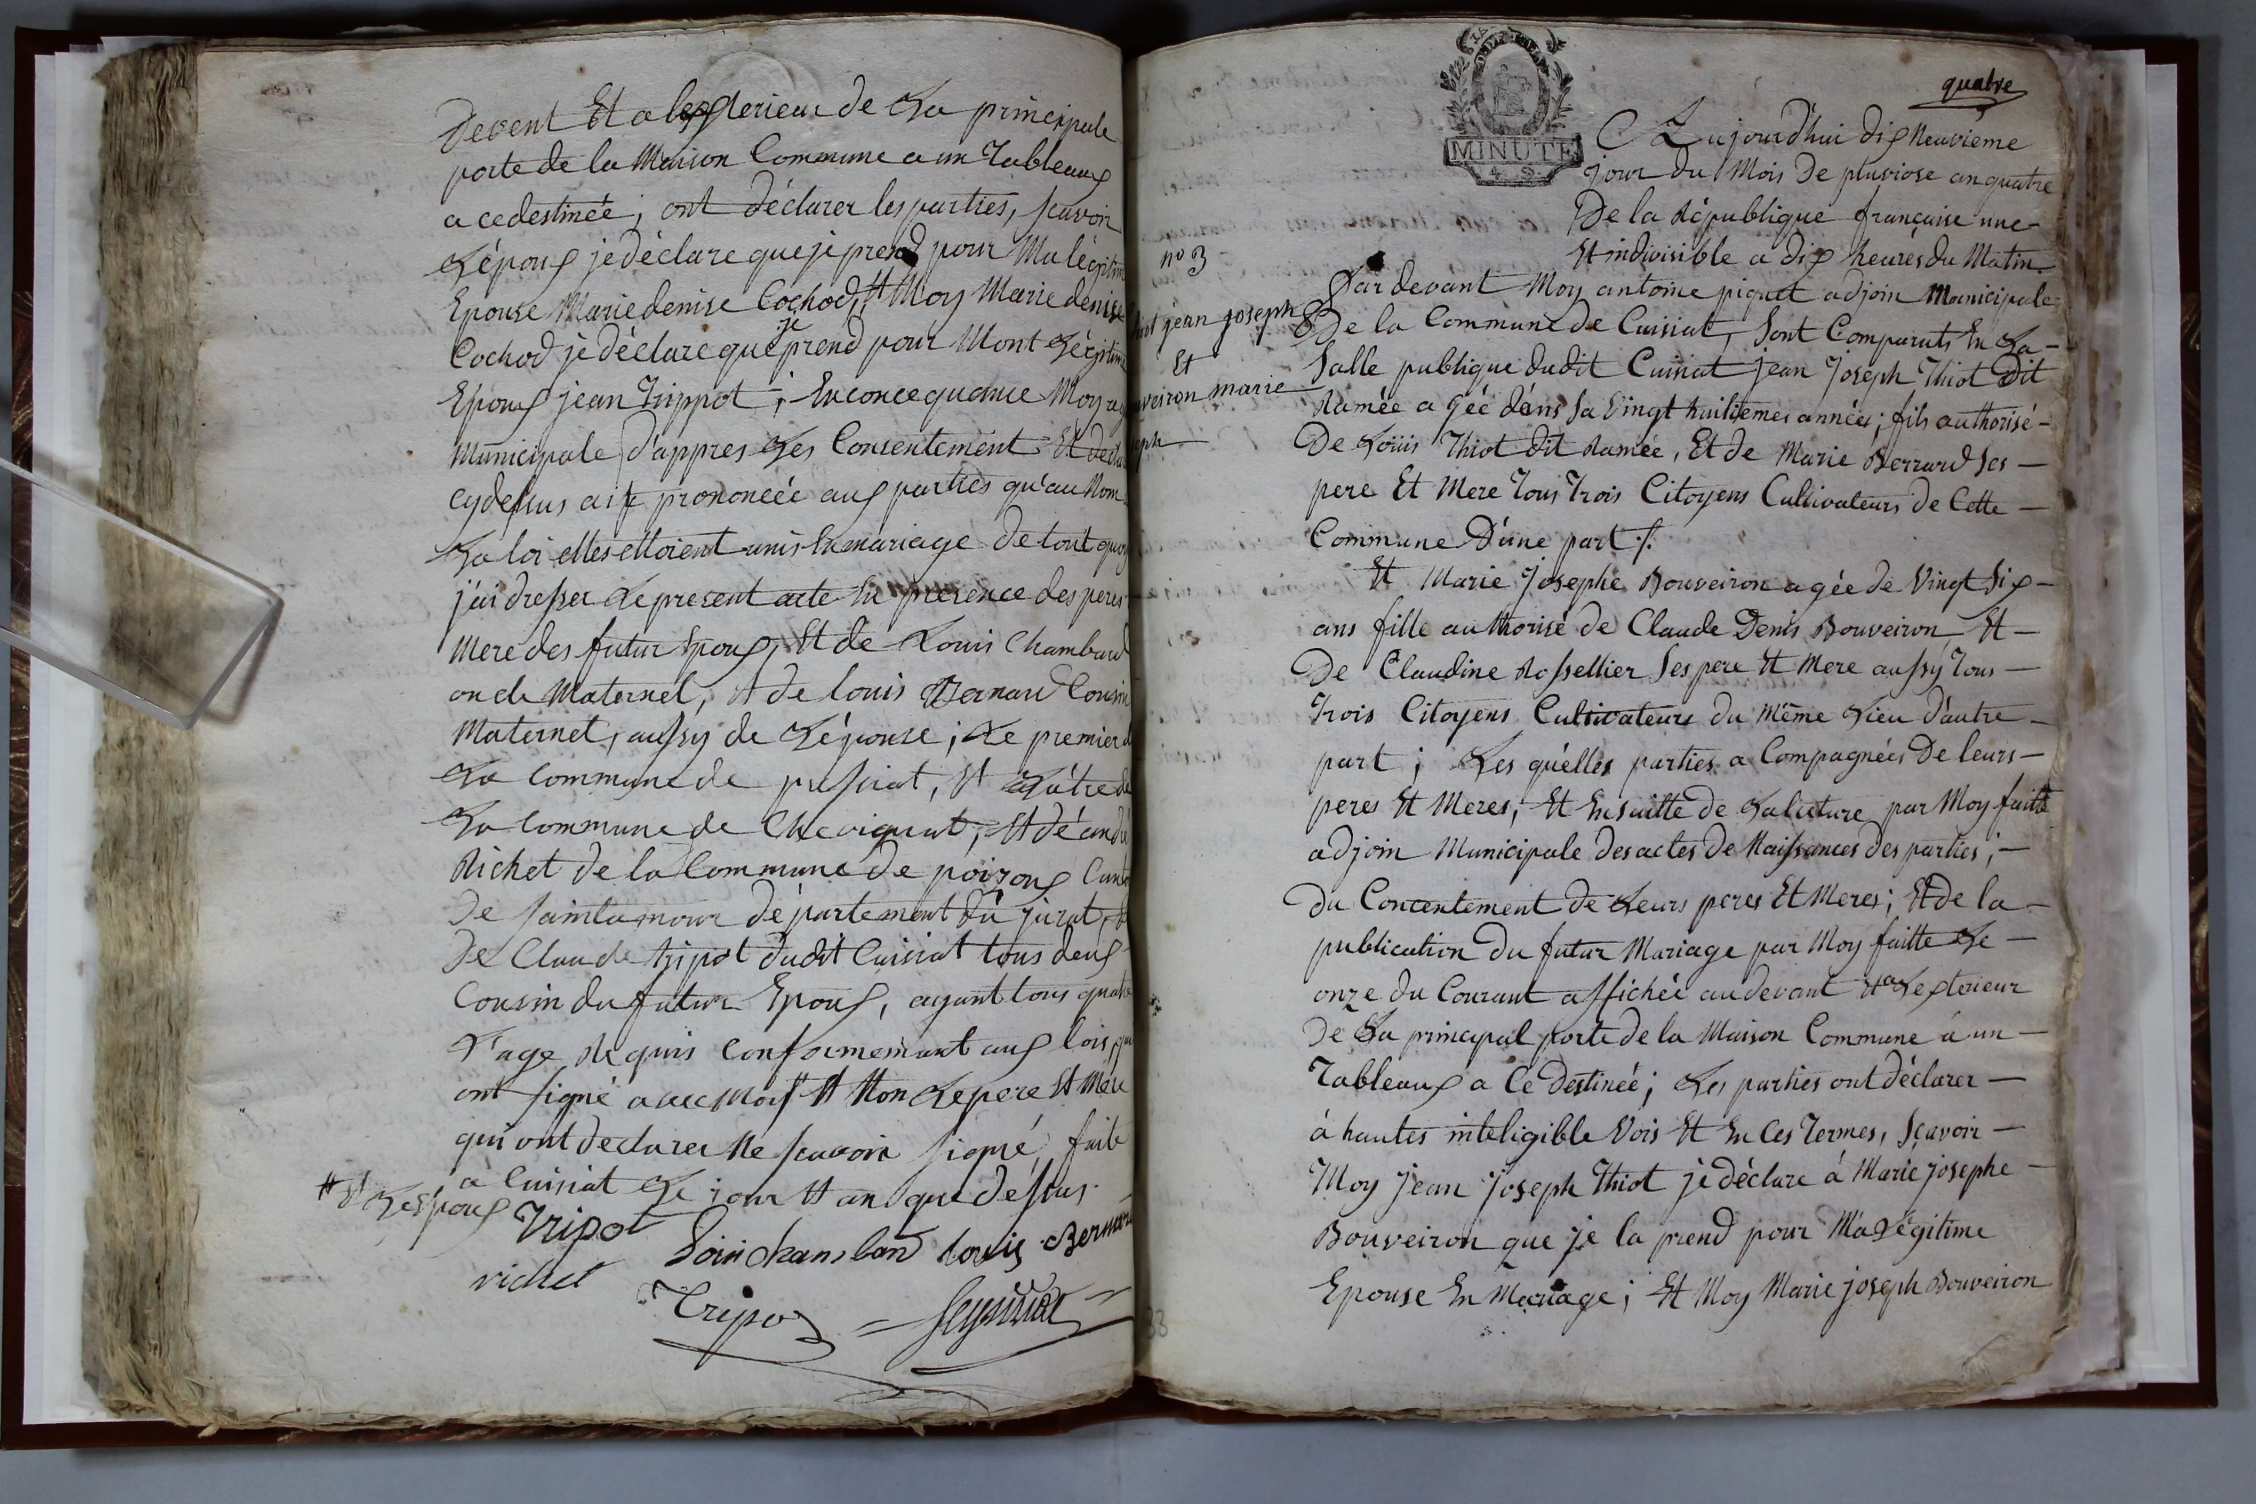 devent Et a lexterieur de La principale
porte de la Maison Commune a un Tableaux
a cedestinéé, ont déclarer les parties, scavoir
L'époux je déclare que je prend pour Ma légitim
Epouse Marie denise Cochod, Et Moy Marie denise
Cochod je déclare que je prend pour Mont Légitim
Epoux jean Trippot; En concequance Moy
Municipale d'appres Les Consentement Et decla
cydessus ait prononcéé aux parties qu'au Nom
La loi elles ettoient unis En mariage de tout quoy
j'ai dresser Le present acte En presence des peres
Mere des futur Epoux, Et de Louis Chambard
oncle Maternel, Et de louis Bernard Cousin
Maternel, aussy de L'épouse; Le premier d
La commune de pressiat, Et L'autre de
La commune de Chevignat, Et dé andré
Richet de la Commune de poisoux Canto
De saintamour département du jurat, Et
De Claude tripot dudit Cuisiat tous deux
Cousin du futur Epoux, ayant tous quatre
L'age Requis Conformement aux lois, qui
ont signé avec Moy # Et Non Le pere Et Mere
qui ont declarer Ne scavoir signé, fait
a Cuisiat Le jour Et an que déssus.
# Et Les époux
Tripot
Louis chanban louis Bernard
richet
Tripoz
MINUTE
4. S.
quatre
Aujourd'hui dix Neuvieme
jour du Mois De pluviose an quatre
De la République française une
Et indivisible a dix heures du Matin
no 3
iot jean joseph
Et
uveiron marie
eph
Par devant Moy antoine piquet adjoin Municipale
De la Commune de Cuisiat, sont Comparuts En La
Salle publique dudit Cuisiat Jean Joseph Thiot Dit
Ramée a géé dans sa Vingt huitiemes années; fils authorisé
De Loüis Thiot dit Ramée, Et de Marie Berrard ses
pere Et Mere Tous Trois Citoyens Cultivateurs de Cette
Commune D'une part /.
Et Marie Josephe Bouveiron agée de Vingt Six
ans fille authorisé de Claude Denis Bouveiron Et
De Claudine Rossellier ses pere Et Mere aussy Tous
Trois Citoyens Cultivateurs du Même Lieu D'autre
part; Les quélles parties a Compagnées De leurs
peres Et Meres, Et Ensuitte de La lecture par Moy faitte
adjoin Municipale des actes de Naissances des parties;
du Concentement de Leurs peres Et Meres; Et de la
publication du futur Mariage par Moy faitte Le
onze du Courant affichéé au devant Et a Lexterieur
De La principal porte de la Maison Commune a un
Tableaux a Ce Destinéé; Les parties ont déclarer
à hautes inteligible Vois Et En Ces Termes, Sçavoir
Moy Jean Joseph Thiot je déclare á Marie josephe
Bouveiron que je la prend pour Ma Légitime
Epouse En Mariage; Et Moy Marie joseph Bouveiron